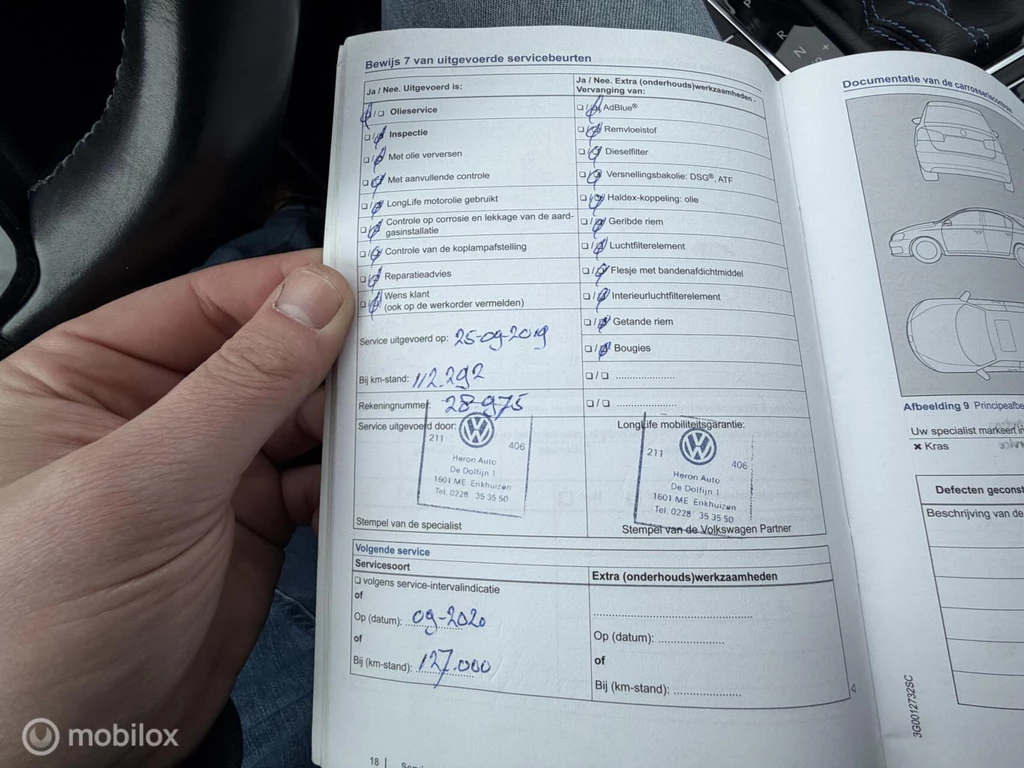 Bewijs 7 van uitgevoerde servicebeurten
Ja / Nee. Uitgevoerd is:
Ja / Nee. Extra (onderhouds)werkzaamheden - Vervanging van:
Olieservice
Inspectie
Met olie verversen
Met aanvullende controle
LongLife motorolie gebruikt
Controle op corrosie en lekkage van de aard-
gasinstallatie
Controle van de koplampafstelling
Reparatieadvies
Wens klant
(ook op de werkorder vermelden)
AdBlue®
Remvloeistof
Dieselfilter
Versnellingsbakolie: DSG®, ATF
Haldex-koppeling: olie
Geribde riem
Luchtfilterelement
Flesje met bandenafdichtmiddel
Interieurluchtfilterelement
Getande riem
Bougies
Service uitgevoerd op: 25-09-2019
Bij km-stand: 112.292
Rekeningnummer: 28-975
Service uitgevoerd door:
211 406
Heron Auto
De Dolfijn 1
1601 ME Enkhuizen
Tel. 0228 35 35 50
Stempel van de specialist
LongLife mobiliteitsgarantie:
211 406
Heron Auto
De Dolfijn 1
1601 ME Enkhuizen
Tel. 0228 35 35 50
Stempel van de Volkswagen Partner
Volgende service
Servicesoort
volgens service-intervalindicatie
of
Op (datum): 09-2020
of
Bij (km-stand): 127.000
Extra (onderhouds)werkzaamheden
Op (datum):
of
Bij (km-stand):
18
Documentatie van de carrosseriecontrole
Afbeelding 9 Principeafbe
Uw specialist markeert in
× Kras
Defecten geconst
Beschrijving van de
3G0012732SC
P
R
N
mobilox